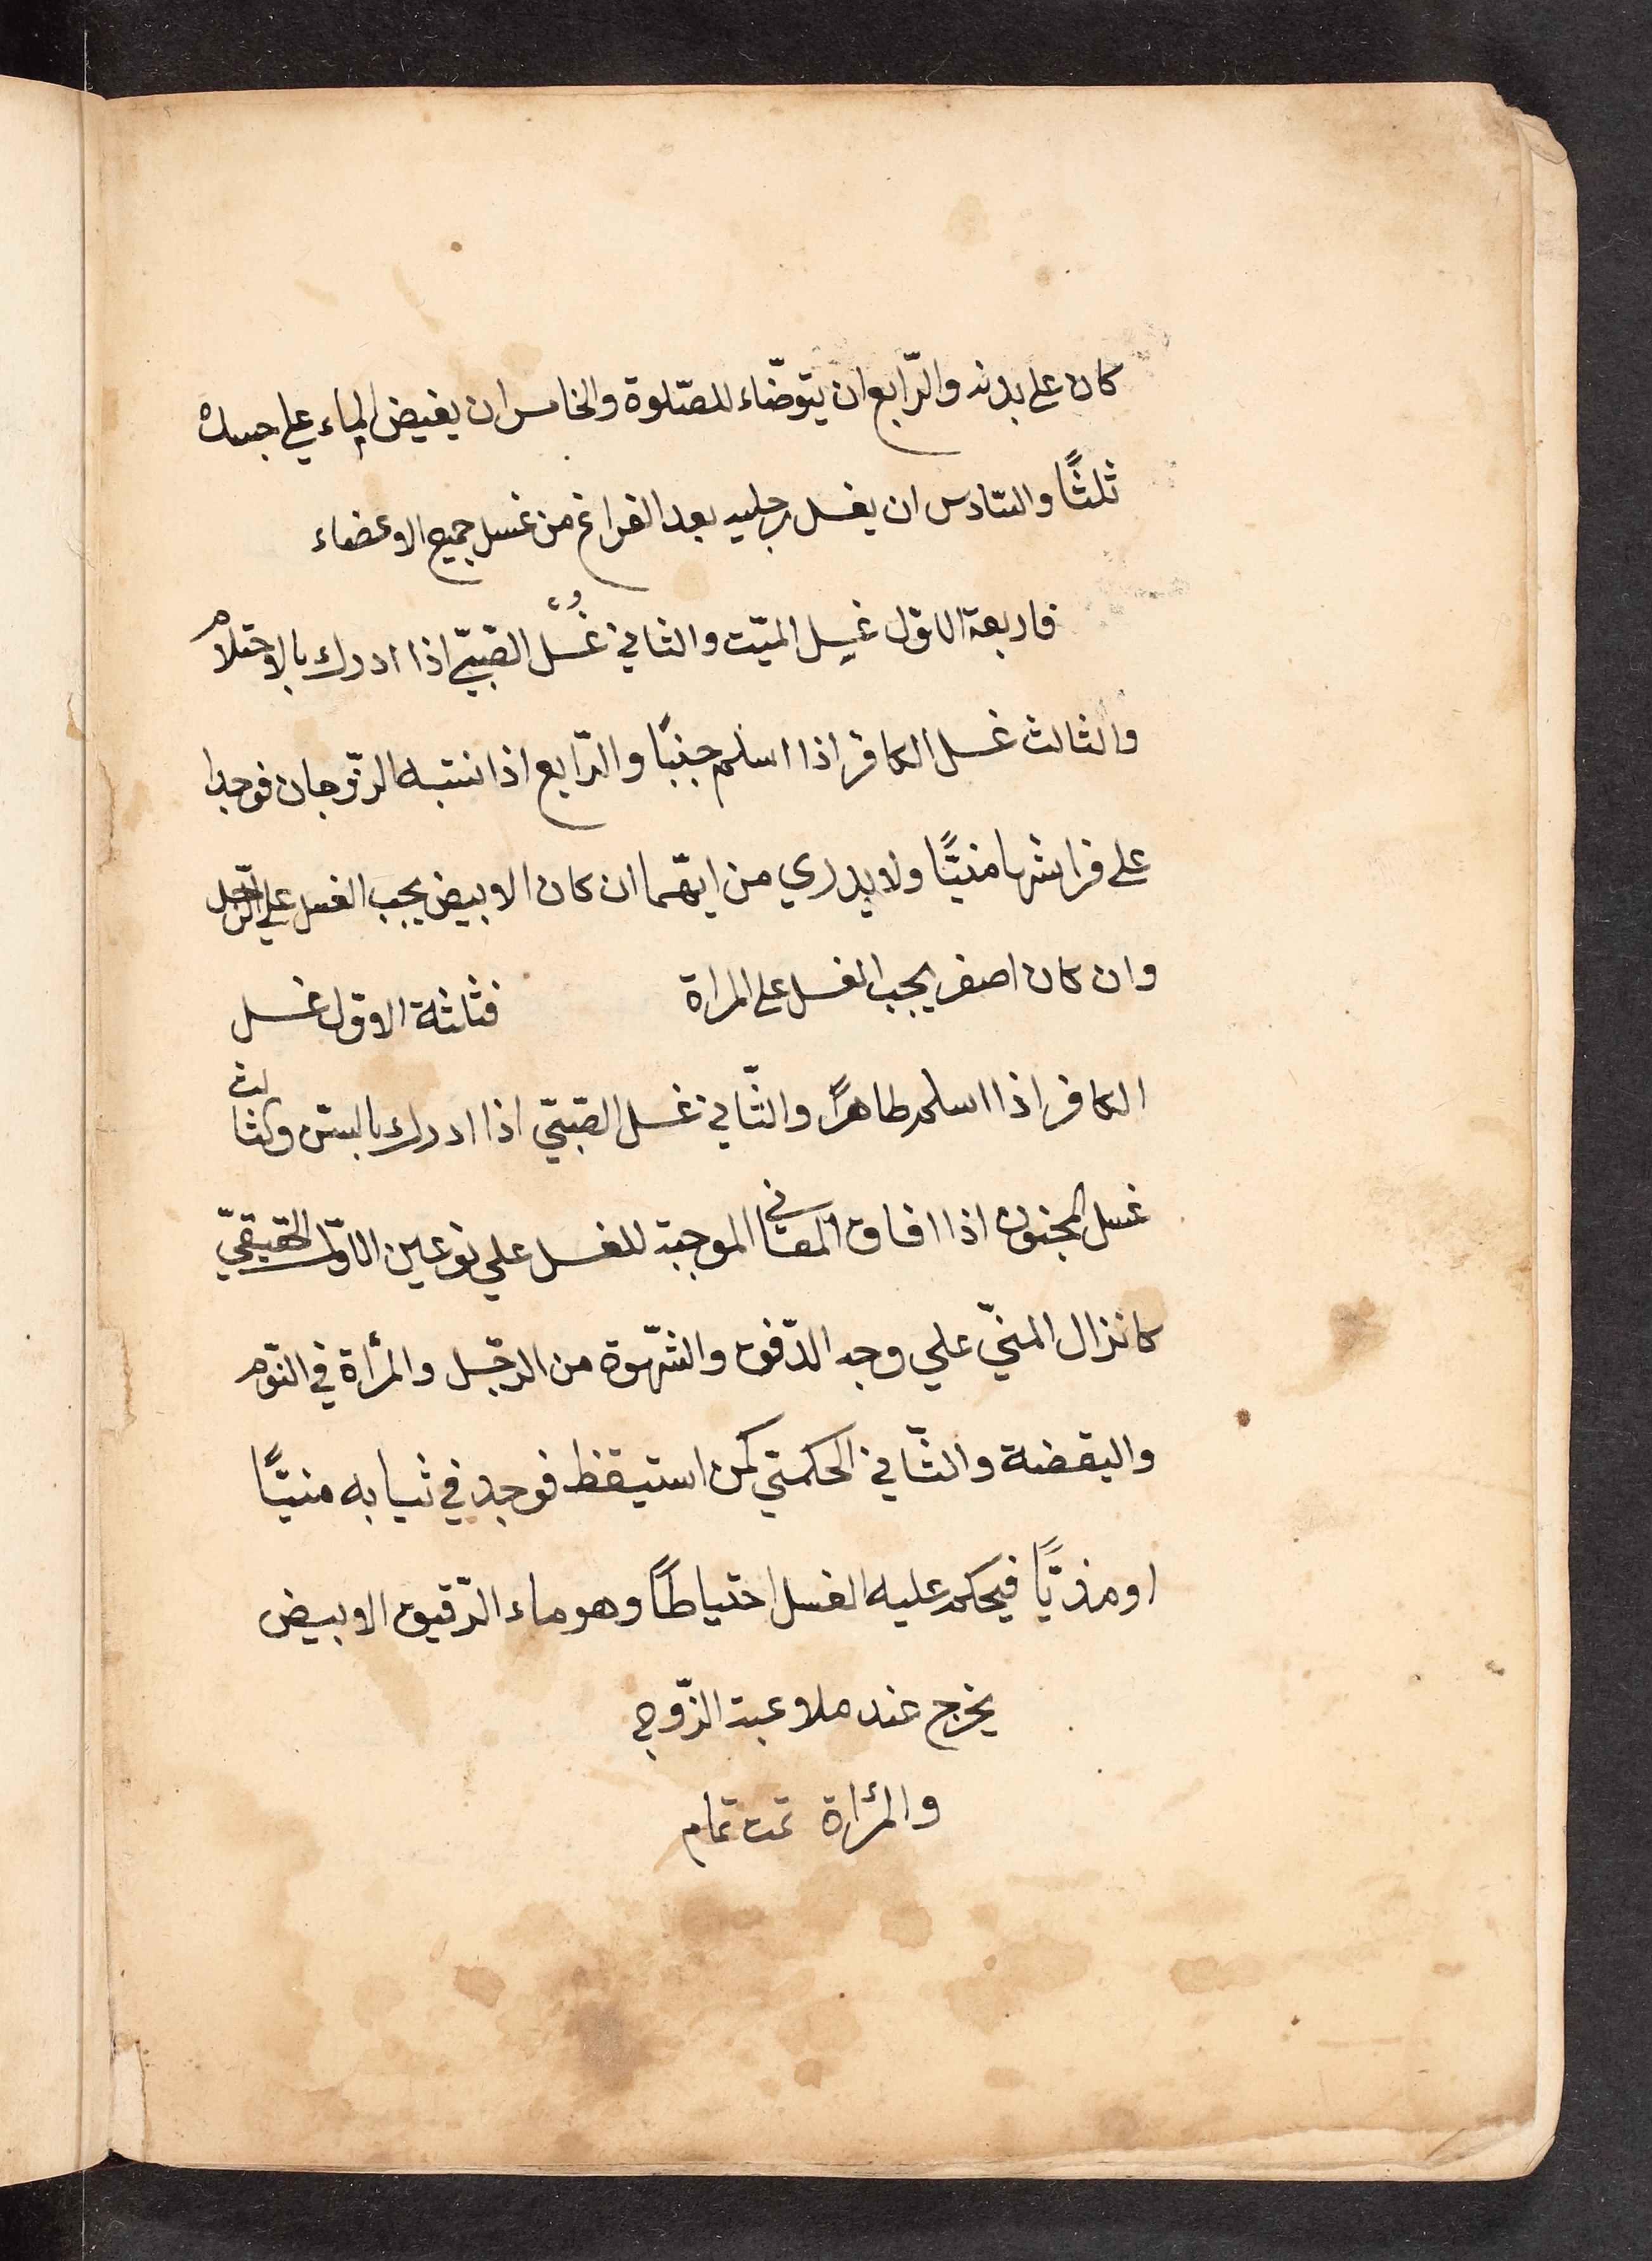 كان على بدنه والرّابع ان يتوضّاء للصّلوة والخامس ان يفيض الماء على جسده
ثلثًا والسّادس ان يغسل رجليه بعد الفراغ من غسل جميع الاعضاء
فاربعة الاوّل غسل الميّت والثاني غُسل الصّبيّ اذا ادرك بالاحتلام
والثالث غسل الكافر اذا اسلم جنبًا والرّابع اذا انتبه الزّوجان فوجدا
على فراشهما منيًّا ولا يدري من ايّهما ان كان الابيض يجب الغسل على الرّجل
وان كان اصفر يجب الغسل على المراة فثلثة الاوّل غسل
الكافر اذا اسلم طاهرًا والثّاني غسل الصّبيّ اذا ادرك بالسّن والثالث
غسل المجنون اذا افاق المعاني الموجبة للغسل على نوعين الاوّل الحقيقيّ
كانزال المنيّ علي وجه الدّفق والشّهوة من الرّجل والمرأة في النّوم
واليقضة والثّاني الحكميّ كمن استيقظ فوجد في ثيابه منيًّا
او مذيًّا فيحكم عليه الغسل احتياطًا وهو ماء الرّقيق الابيض
يخرج عند ملاعبة الزّوج
والمرأة تمت تمام